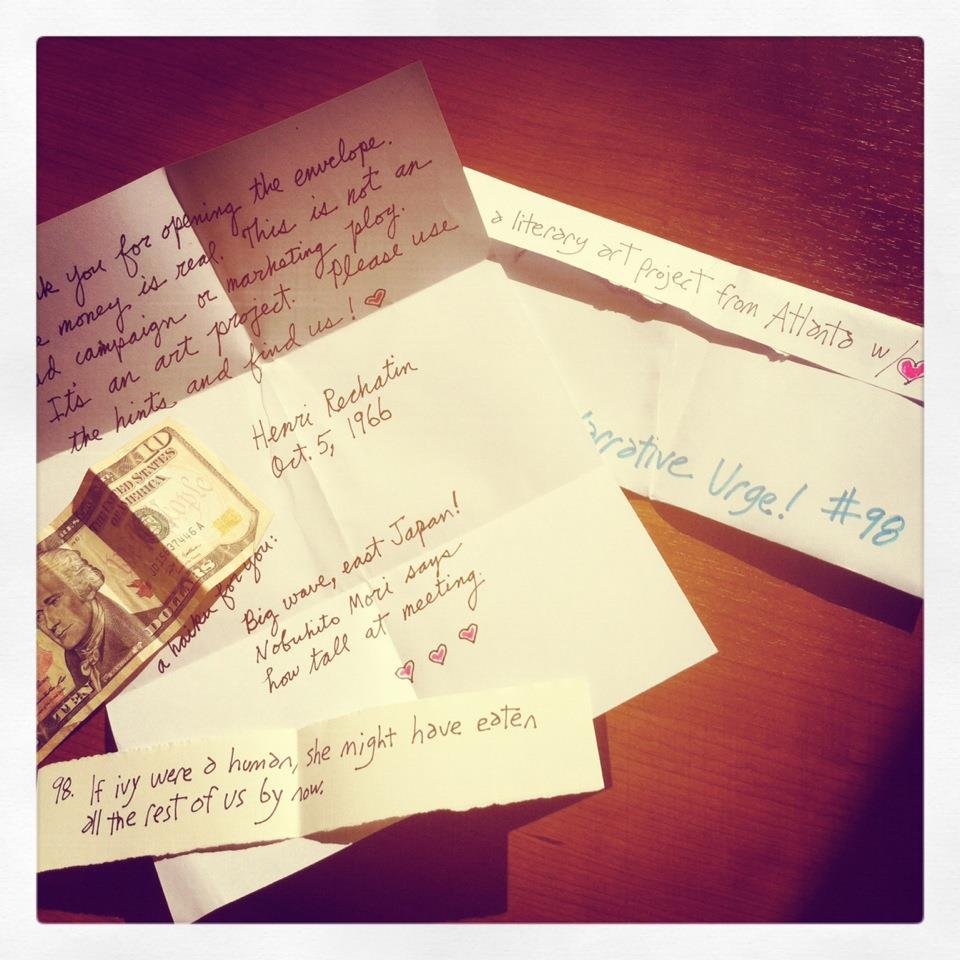 ank you for opening the envelope.
e money is real. This is not an
ad campaign or marketing ploy.
It's an art project. Please use
the hints and find us!
Henri Rechatin
Oct. 5, 1966
a haiku for you:
Big wave, east Japan!
Nobuhito Mori says
how tall at meeting.
98. If ivy were a human, she might have eaten
all the rest of us by now.
a literary art project from Atlanta w/
arrative Urge! #98
10
THE UNITED STATES
OF AMERICA
TEN DOLLARS